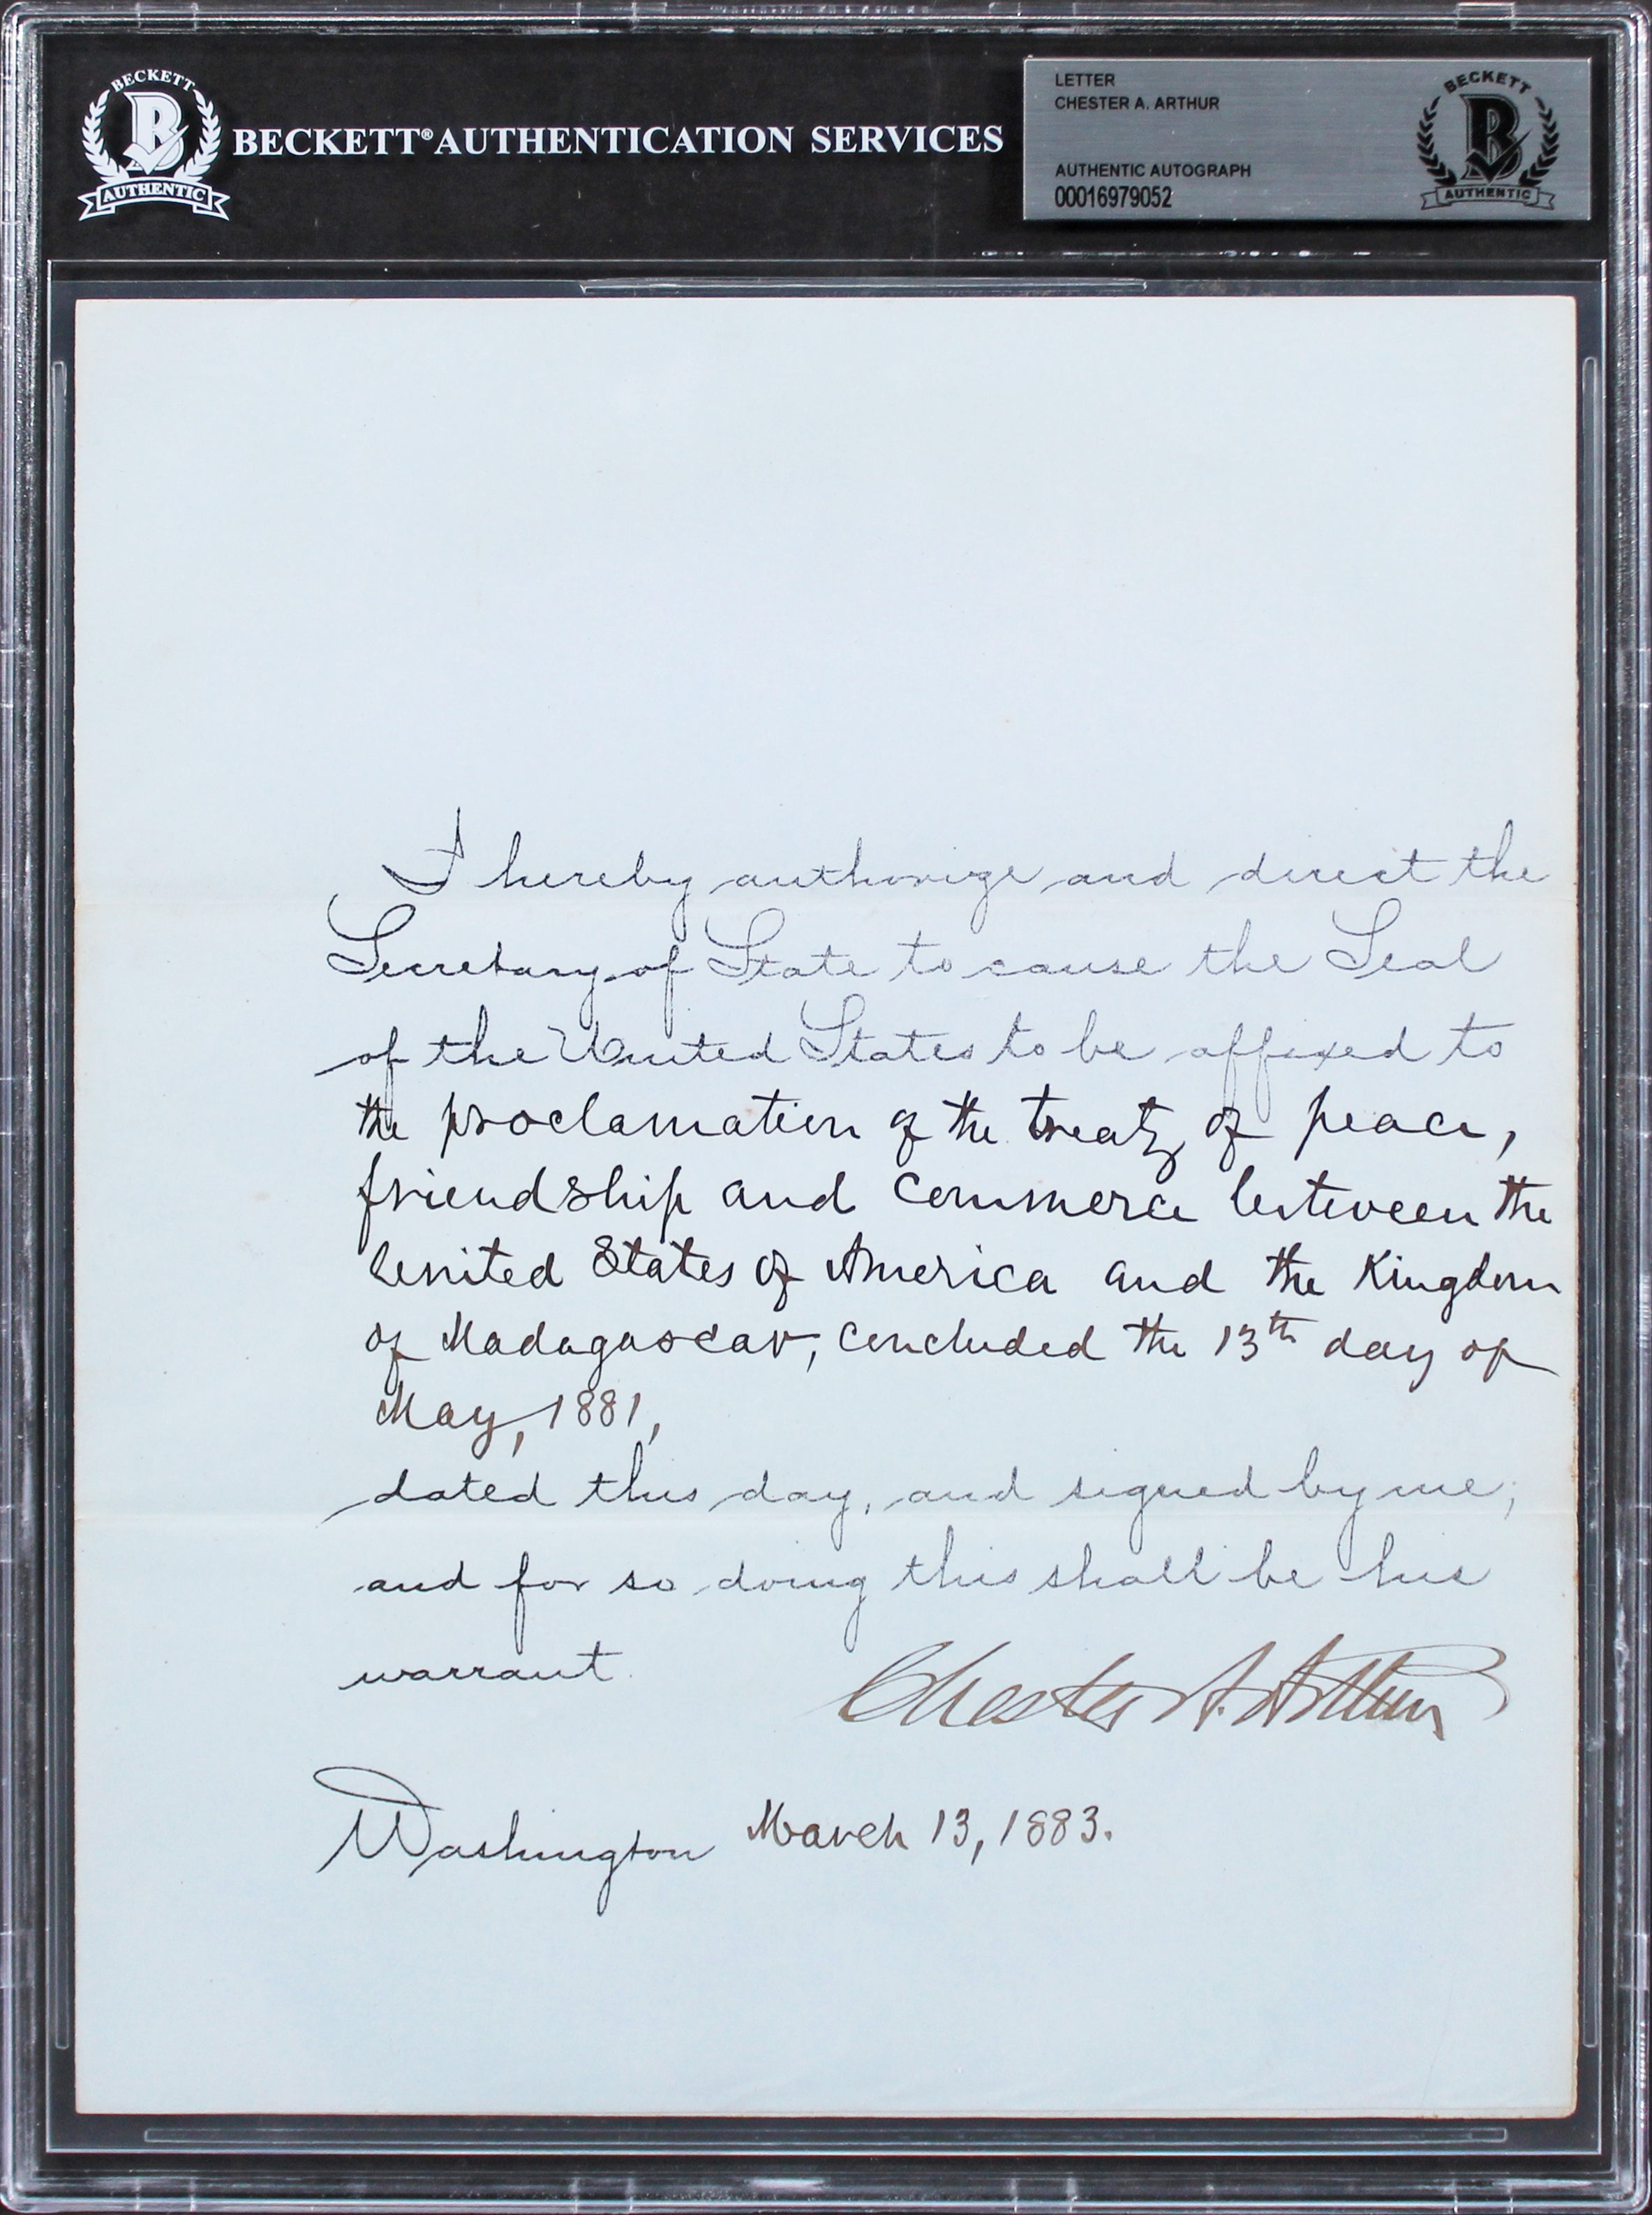 BECKETT
B
AUTHENTIC
BECKETT® AUTHENTICATION SERVICES
LETTER
CHESTER A. ARTHUR
AUTHENTIC AUTOGRAPH
00016979052
BECKETT
B
AUTHENTIC
I hereby authorize and direct the
Secretary of State to cause the Seal
of the United States to be affixed to
the proclamation of the treaty of peace,
friendship and commerce between the
United States of America and the Kingdom
of Madagascar, concluded the 13th day of
May, 1881,
dated this day, and signed by me;
and for so doing this shall be his
warrant.
Chester A. Arthur
Washington March 13, 1883.